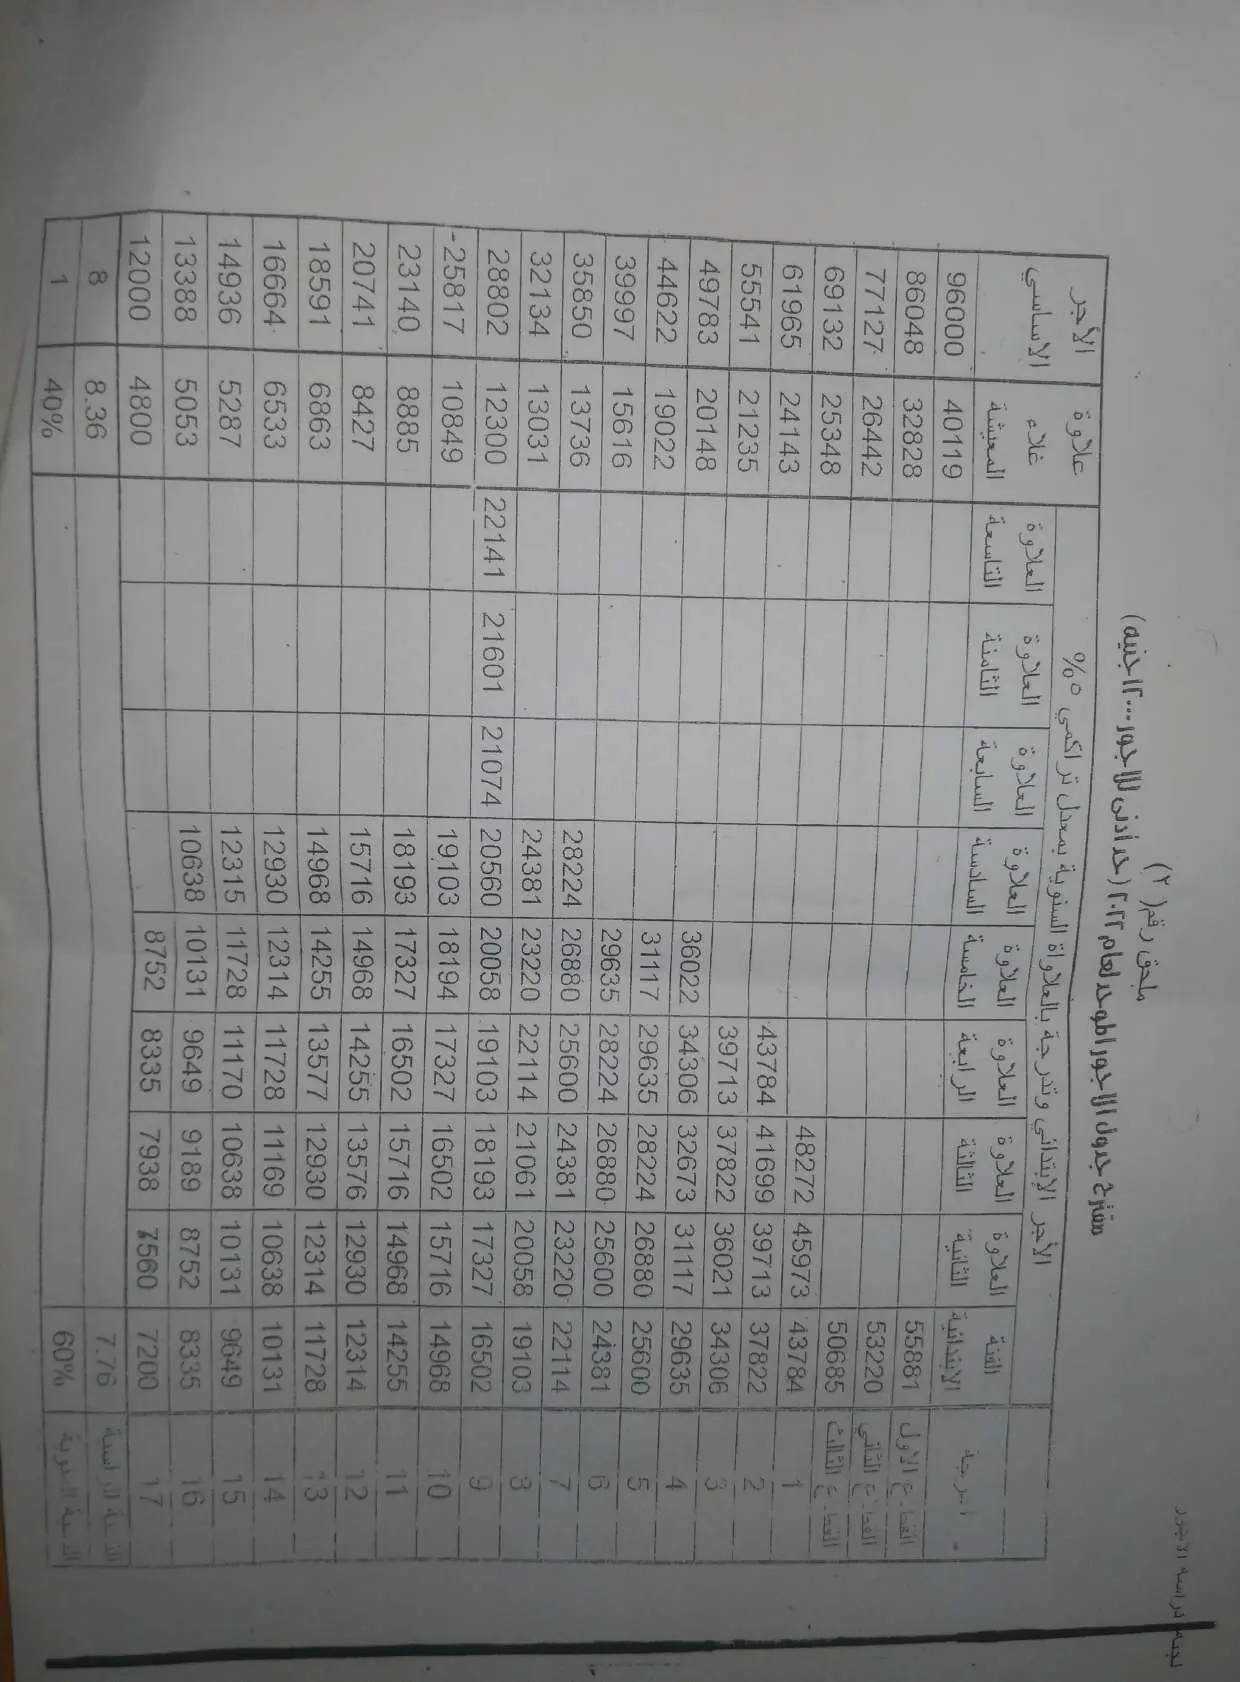 لجنة دراسة الاجور
ملحق رقم (٢)
مقترح جدول الاجور الموحد لعام ٢٠٢٢ (حد أدنى للاجور ١٢٠٠٠ جنيه)
الأجر الإبتدائي وتدرجة بالعلاواة السنوية بمعدل تراكمي ٥%
الدرجة الفئة الابتدائية العلاوة الثانية العلاوة الثالثة العلاوة الرابعة العلاوة الخامسة العلاوة السادسة العلاوة السابعة العلاوة الثامنة العلاوة التاسعة علاوة غلاء المعيشة الأجر الاساسي
القطاع الاول 55881 40119 96000
القطاع الثاني 53220 32828 86048
القطاع الثالث 50685 26442 77127
1 43784 45973 48272 25348 69132
2 37822 39713 41699 43784 24143 61965
3 34306 36021 37822 39713 21235 55541
4 29635 31117 32673 34306 36022 20148 49783
5 25600 26880 28224 29635 31117 19022 44622
6 24381 25600 26880 28224 29635 15616 39997
7 22114 23220 24381 25600 26880 28224 13736 35850
8 19103 20058 21061 22114 23220 24381 13031 32134
9 16502 17327 18193 19103 20058 20560 21074 21601 22141 12300 28802
10 14968 15716 16502 17327 18194 19103 10849 25817
11 14255 14968 15716 16502 17327 18193 8885 23140
12 12314 12930 13576 14255 14968 15716 8427 20741
13 11728 12314 12930 13577 14255 14968 6863 18591
14 10131 10638 11169 11728 12314 12930 6533 16664
15 9649 10131 10638 11170 11728 12315 5287 14936
16 8335 8752 9189 9649 10131 10638 5053 13388
17 7200 7560 7938 8335 8752 4800 12000
النسبة الرأسية 7.76 8.36 8
النسبة المئوية 60% 40% 1